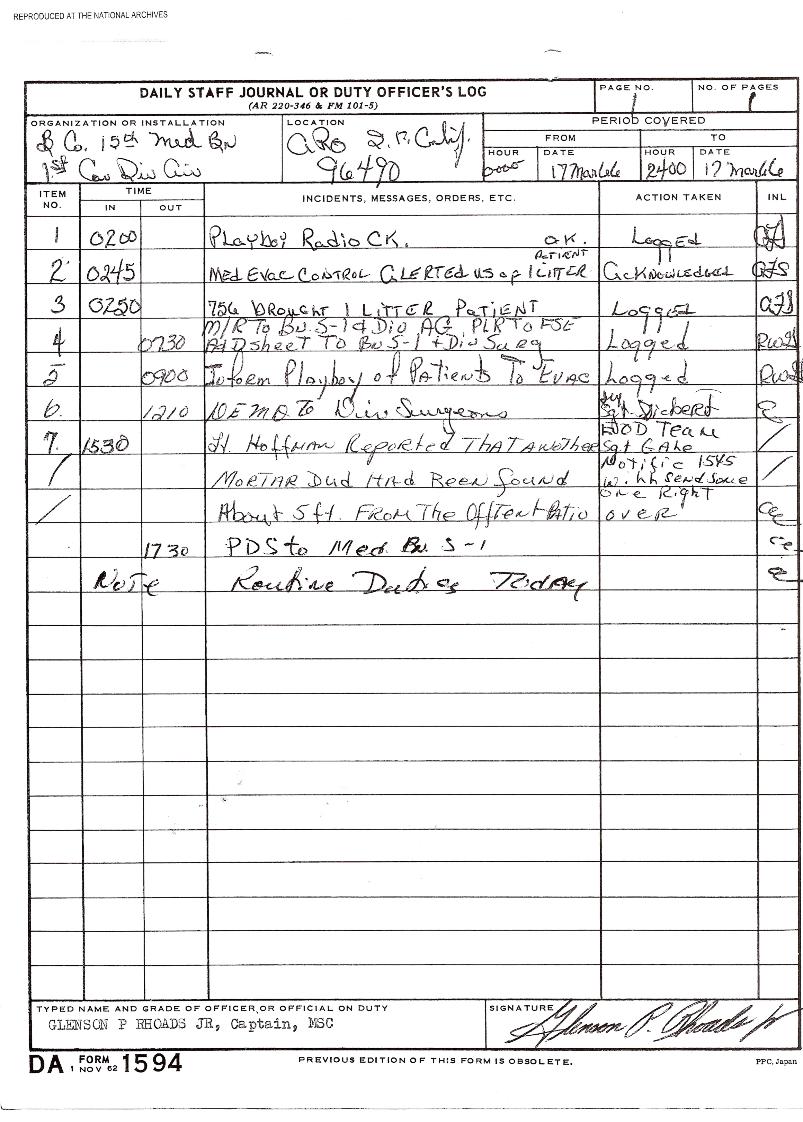 REPRODUCED AT THE NATIONAL ARCHIVES
DAILY STAFF JOURNAL OR DUTY OFFICER'S LOG
(AR 220-346 & FM 101-5)
PAGE NO.
1
NO. OF PAGES
1
ORGANIZATION OR INSTALLATION
B Co. 15th Med Bn
1st Cav Div Air
LOCATION
APO S.F. Calif.
96490
PERIOD COVERED
FROM
TO
HOUR
DATE
HOUR
DATE
0000
17 Mar
2400
17 Mar
ITEM NO.
TIME
IN
OUT
INCIDENTS, MESSAGES, ORDERS, ETC.
ACTION TAKEN
INL
1 0200 Playboy Radio CK. O.K. Logged
PATIENT
2 0245 MED EVAC CONTROL ALERTED US of 1 LITTER Acknowledged
3 0250 756 BROUGHT 1 LITTER PATIENT Logged
M/R To Bn. S-1 & Div AG, PLR To FSE
4 0730 A&D sheet To Bn S-1 & Div Surg Logged
5 0900 Inform Playboy of Patients To EVAC Logged
6. 1210 To Div Surgeons Sgt.
EOD Team
7. 1530 Lt. Hoffman Reported That Another Sgt Gale
Notific 1545
/ Mortar Dud Had Been found w. hh send some
one Right
/ About 5 ft. From The Patio over
1730 PDS to Med. Bn S-1
Note Routine Duties Today
TYPED NAME AND GRADE OF OFFICER OR OFFICIAL ON DUTY
GLENSON P RHOADS JR, Captain, MSC
SIGNATURE
Glenson P. Rhoads Jr
DA FORM 1 NOV 62 1594
PREVIOUS EDITION OF THIS FORM IS OBSOLETE.
PPC, Japan